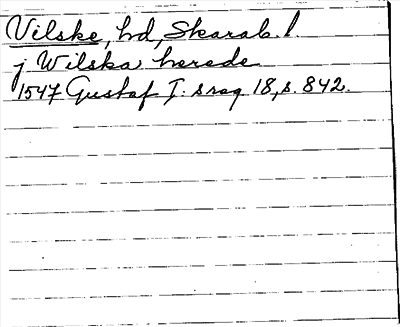 Vilske, hd, Skarab. l.
j Wilska herede
1547 Gustaf I: s reg 18, s. 842.